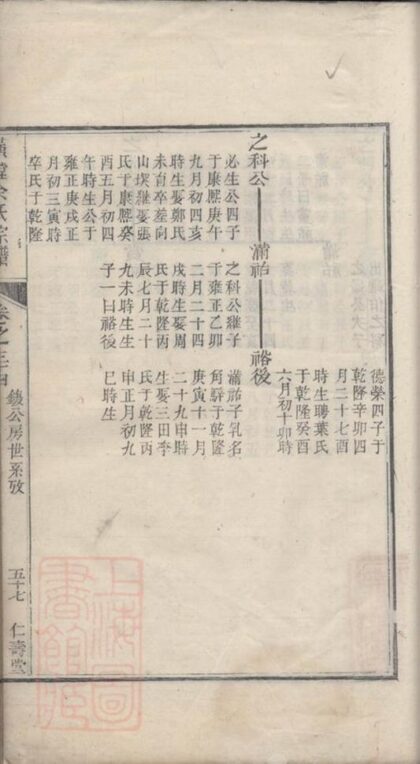 德榮四子于
乾隆辛卯四
月二十七酉
時生聘葉氏
于乾隆癸
六月初十卯時
之科公 滿祐 裕後
必生公四子
于康熙庚午
九月初四亥
時生娶鄭氏
未育卒差向
山墣繼娶張
氏于康熙癸
酉五月初四
午時生公于
雍正庚戌正
月初三寅時
卒氏于乾隆
之科公繼子
于雍正乙卯
二月二十四
戌時生娶周
氏于乾隆丙
辰七月二十
九未時生生
子一曰裕後
滿祐子乳名
于乾隆
庚寅十一月
二十九申時
生娶三田李
氏于乾隆丙
申正月初九
巳時生
余氏宗譜
卷之
公房世系攷
五十七
仁壽堂
上海圖書館藏